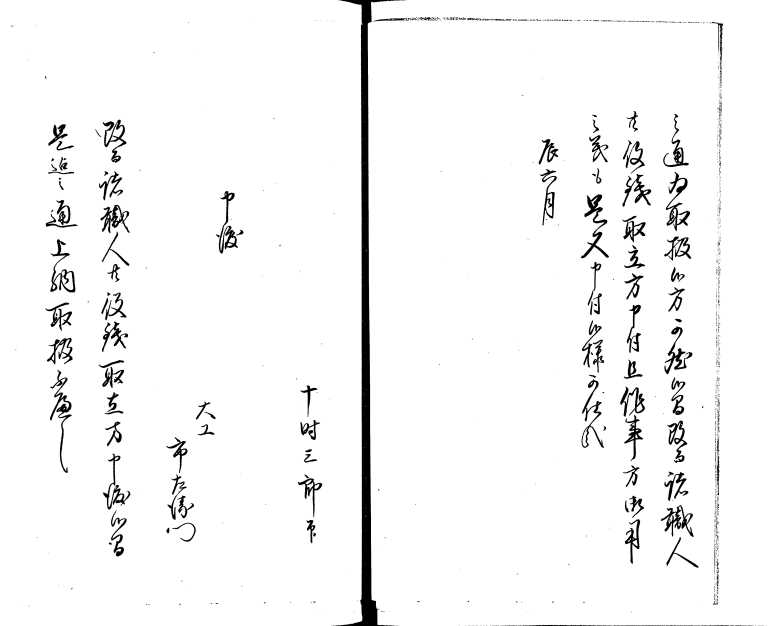 之通為取扱候方可然候間改而諸職人
共役銭取立方申付且作事方御用
之義も是又申付候様可仕哉
辰六月
十時三郎兵衛
申渡
大工
市左衛門
改而諸職人共役銭取立方申渡候間
是迄之通上納取扱可廉し